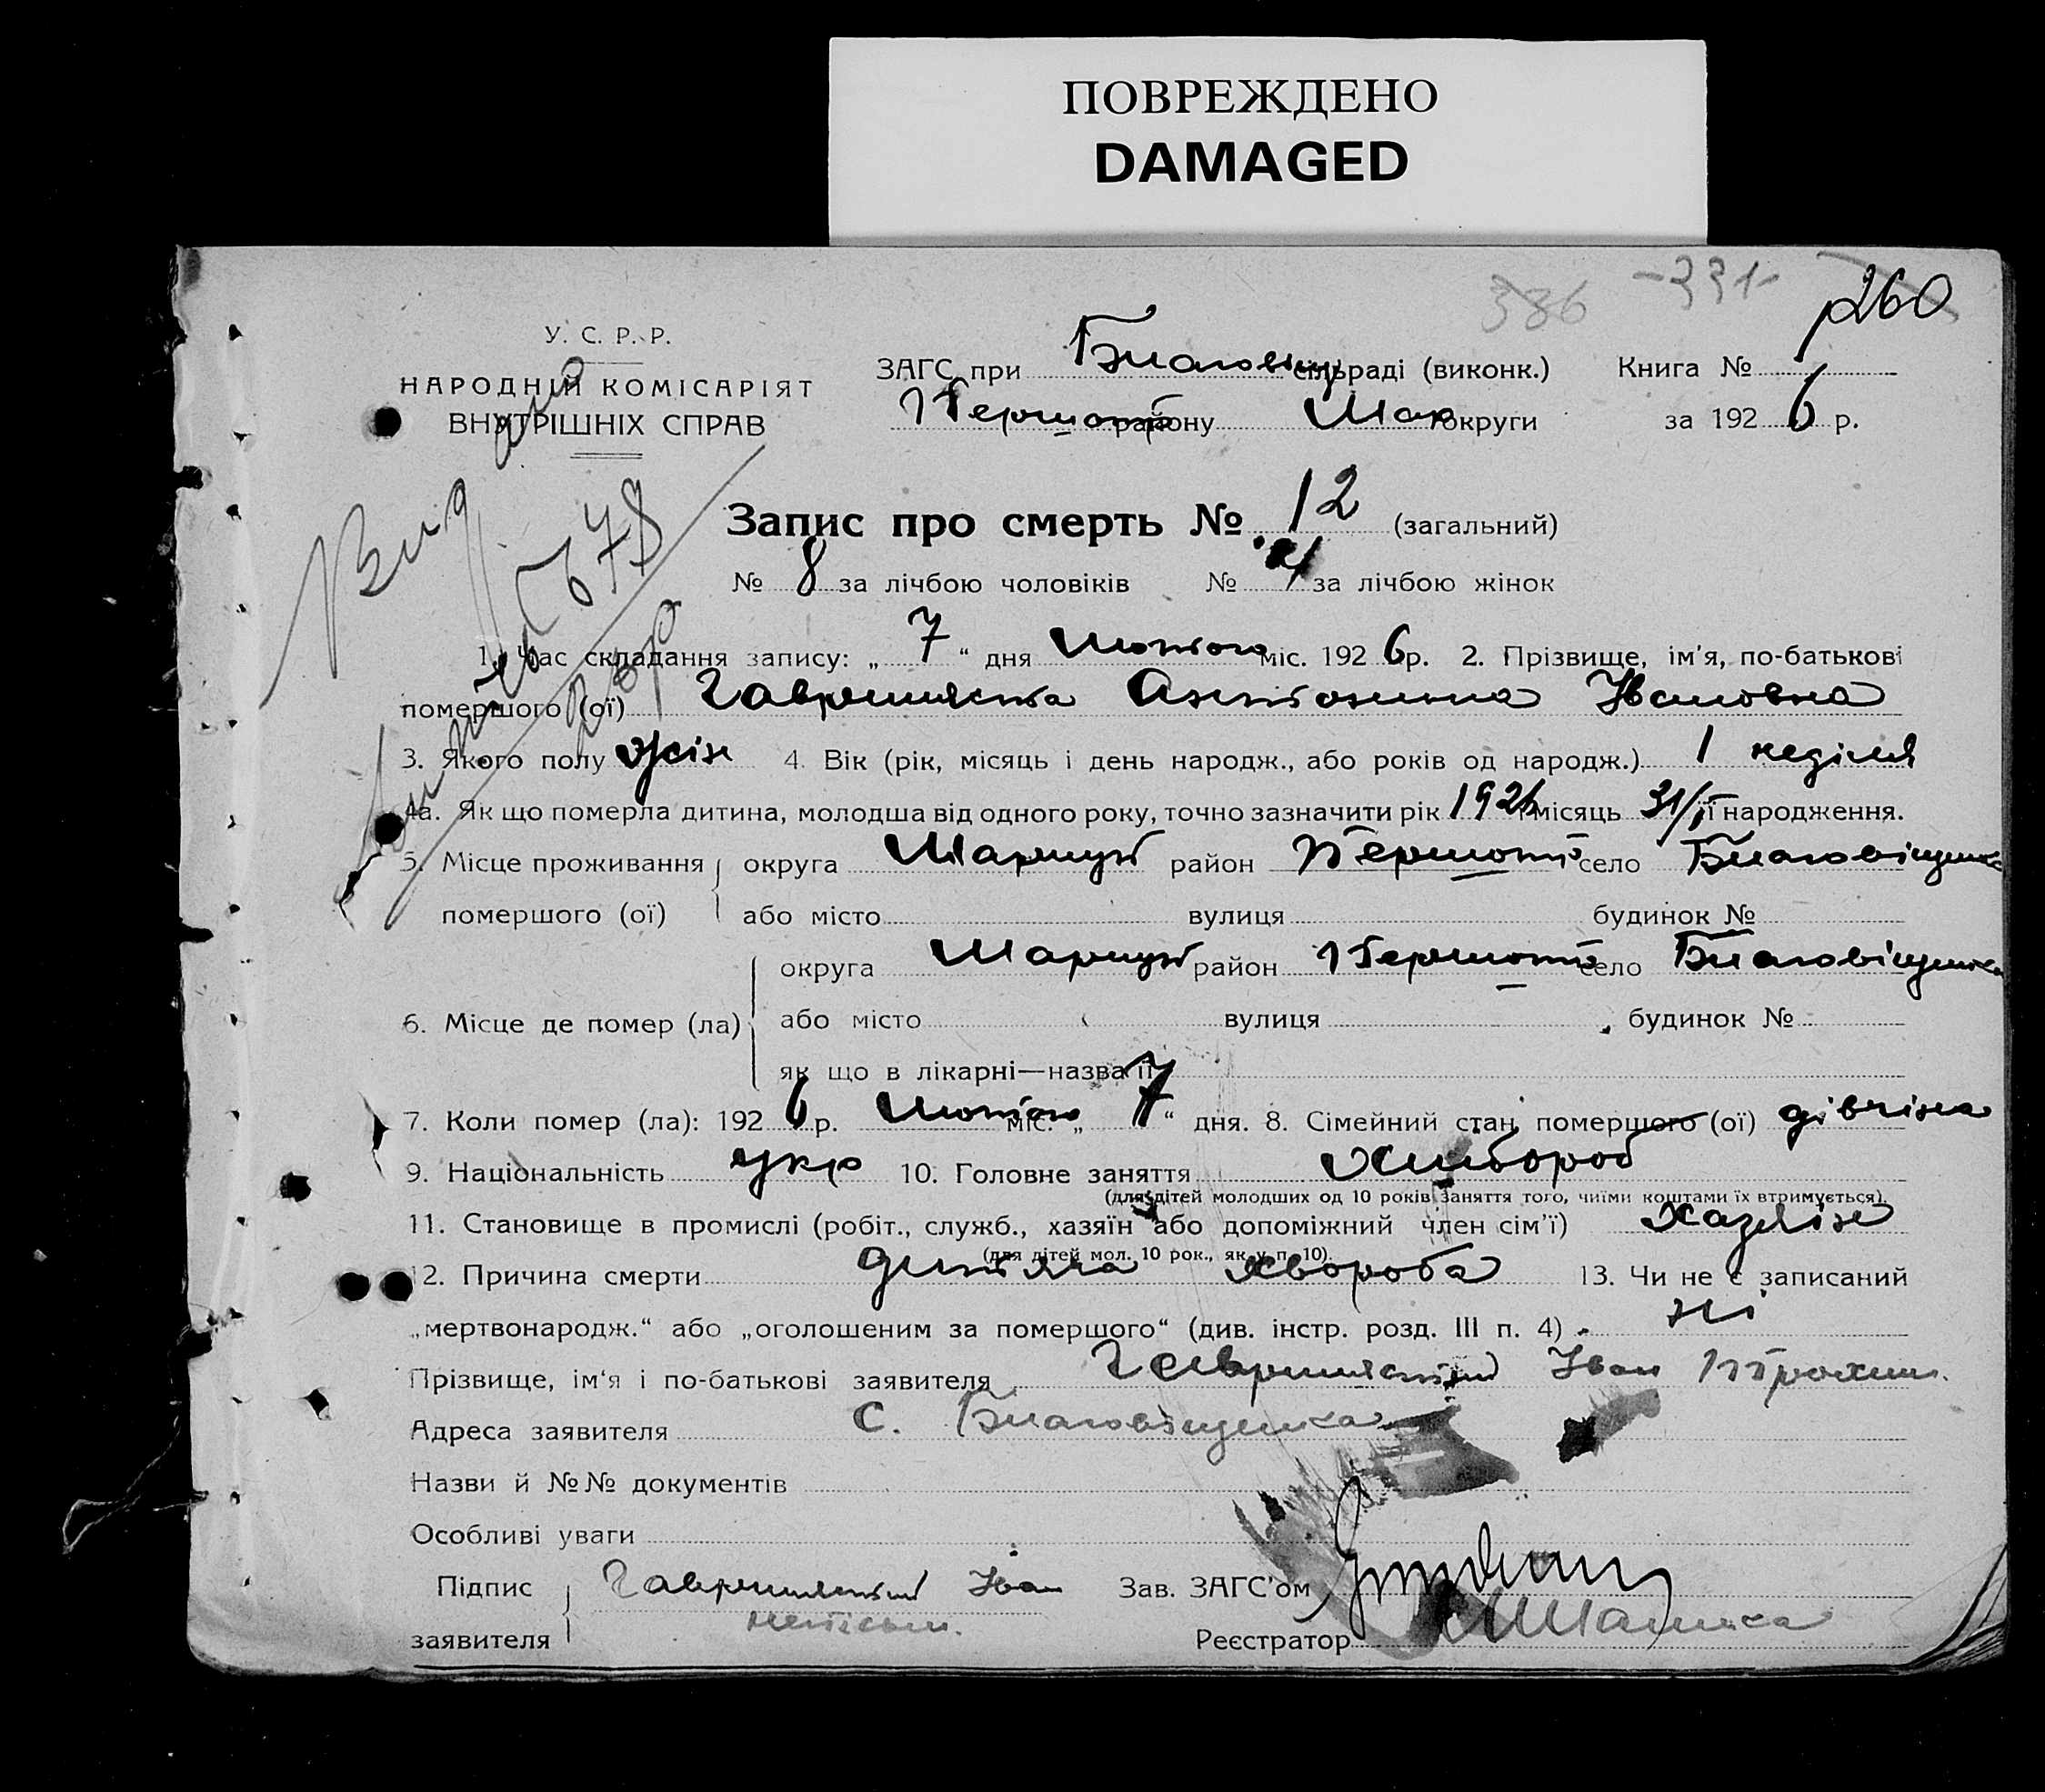 ПОВРЕЖДЕНО
DAMAGED
386 -331- 260
У. С. Р. Р.
НАРОДНІЙ КОМІСАРІЯТ
ВНУТРІШНІХ СПРАВ
ЗАГС при Благовіщ сільраді (виконк.) Книга №
Першотр району Мар округи за 1926 р.
Запис про смерть № 12 (загальний)
№ 8 за лічбою чоловіків № 4 за лічбою жінок
1. Час складання запису: „ 7 “ дня Лютого міс. 1926 р. 2. Прізвище, ім'я, по-батькові
помершого (ої) Антонина Івановна
3. Якого полу жін 4. Вік (рік, місяць і день народж., або років од народж.) 1 неділя
4а. Як що померла дитина, молодша від одного року, точно зазначити рік 1926 місяць 31/I її народження.
5. Місце проживання округа Маріуп район Першотр село Благовіщенка
помершого (ої) або місто вулиця будинок №
округа Маріуп район Першотр село Благовіщенка
6. Місце де помер (ла) або місто вулиця будинок №
як що в лікарні—назва її
7. Коли помер (ла): 1926 р. Лютого міс. „ 7 “ дня. 8. Сімейний стан помершого (ої) дівчина
9. Національність укр 10. Головне заняття Хлібороб
(для дітей молодших од 10 років заняття того, чиїми коштами їх втримується).
11. Становище в промислі (робіт., служб., хазяїн або допоміжний член сім'ї) хазяїн
(для дітей мол. 10 рок., як у п. 10).
12. Причина смерти дитяча хвороба 13. Чи не є записаний
„мертвонародж.“ або „оголошеним за помершого“ (див. інстр. розд. III п. 4) ні
Прізвище, ім'я і по-батькові заявителя Іван
Адреса заявителя с. Благовіщенка
Назви й №№ документів
Особливі уваги
Підпис Іван Зав. ЗАГС'ом
заявителя Реєстратор